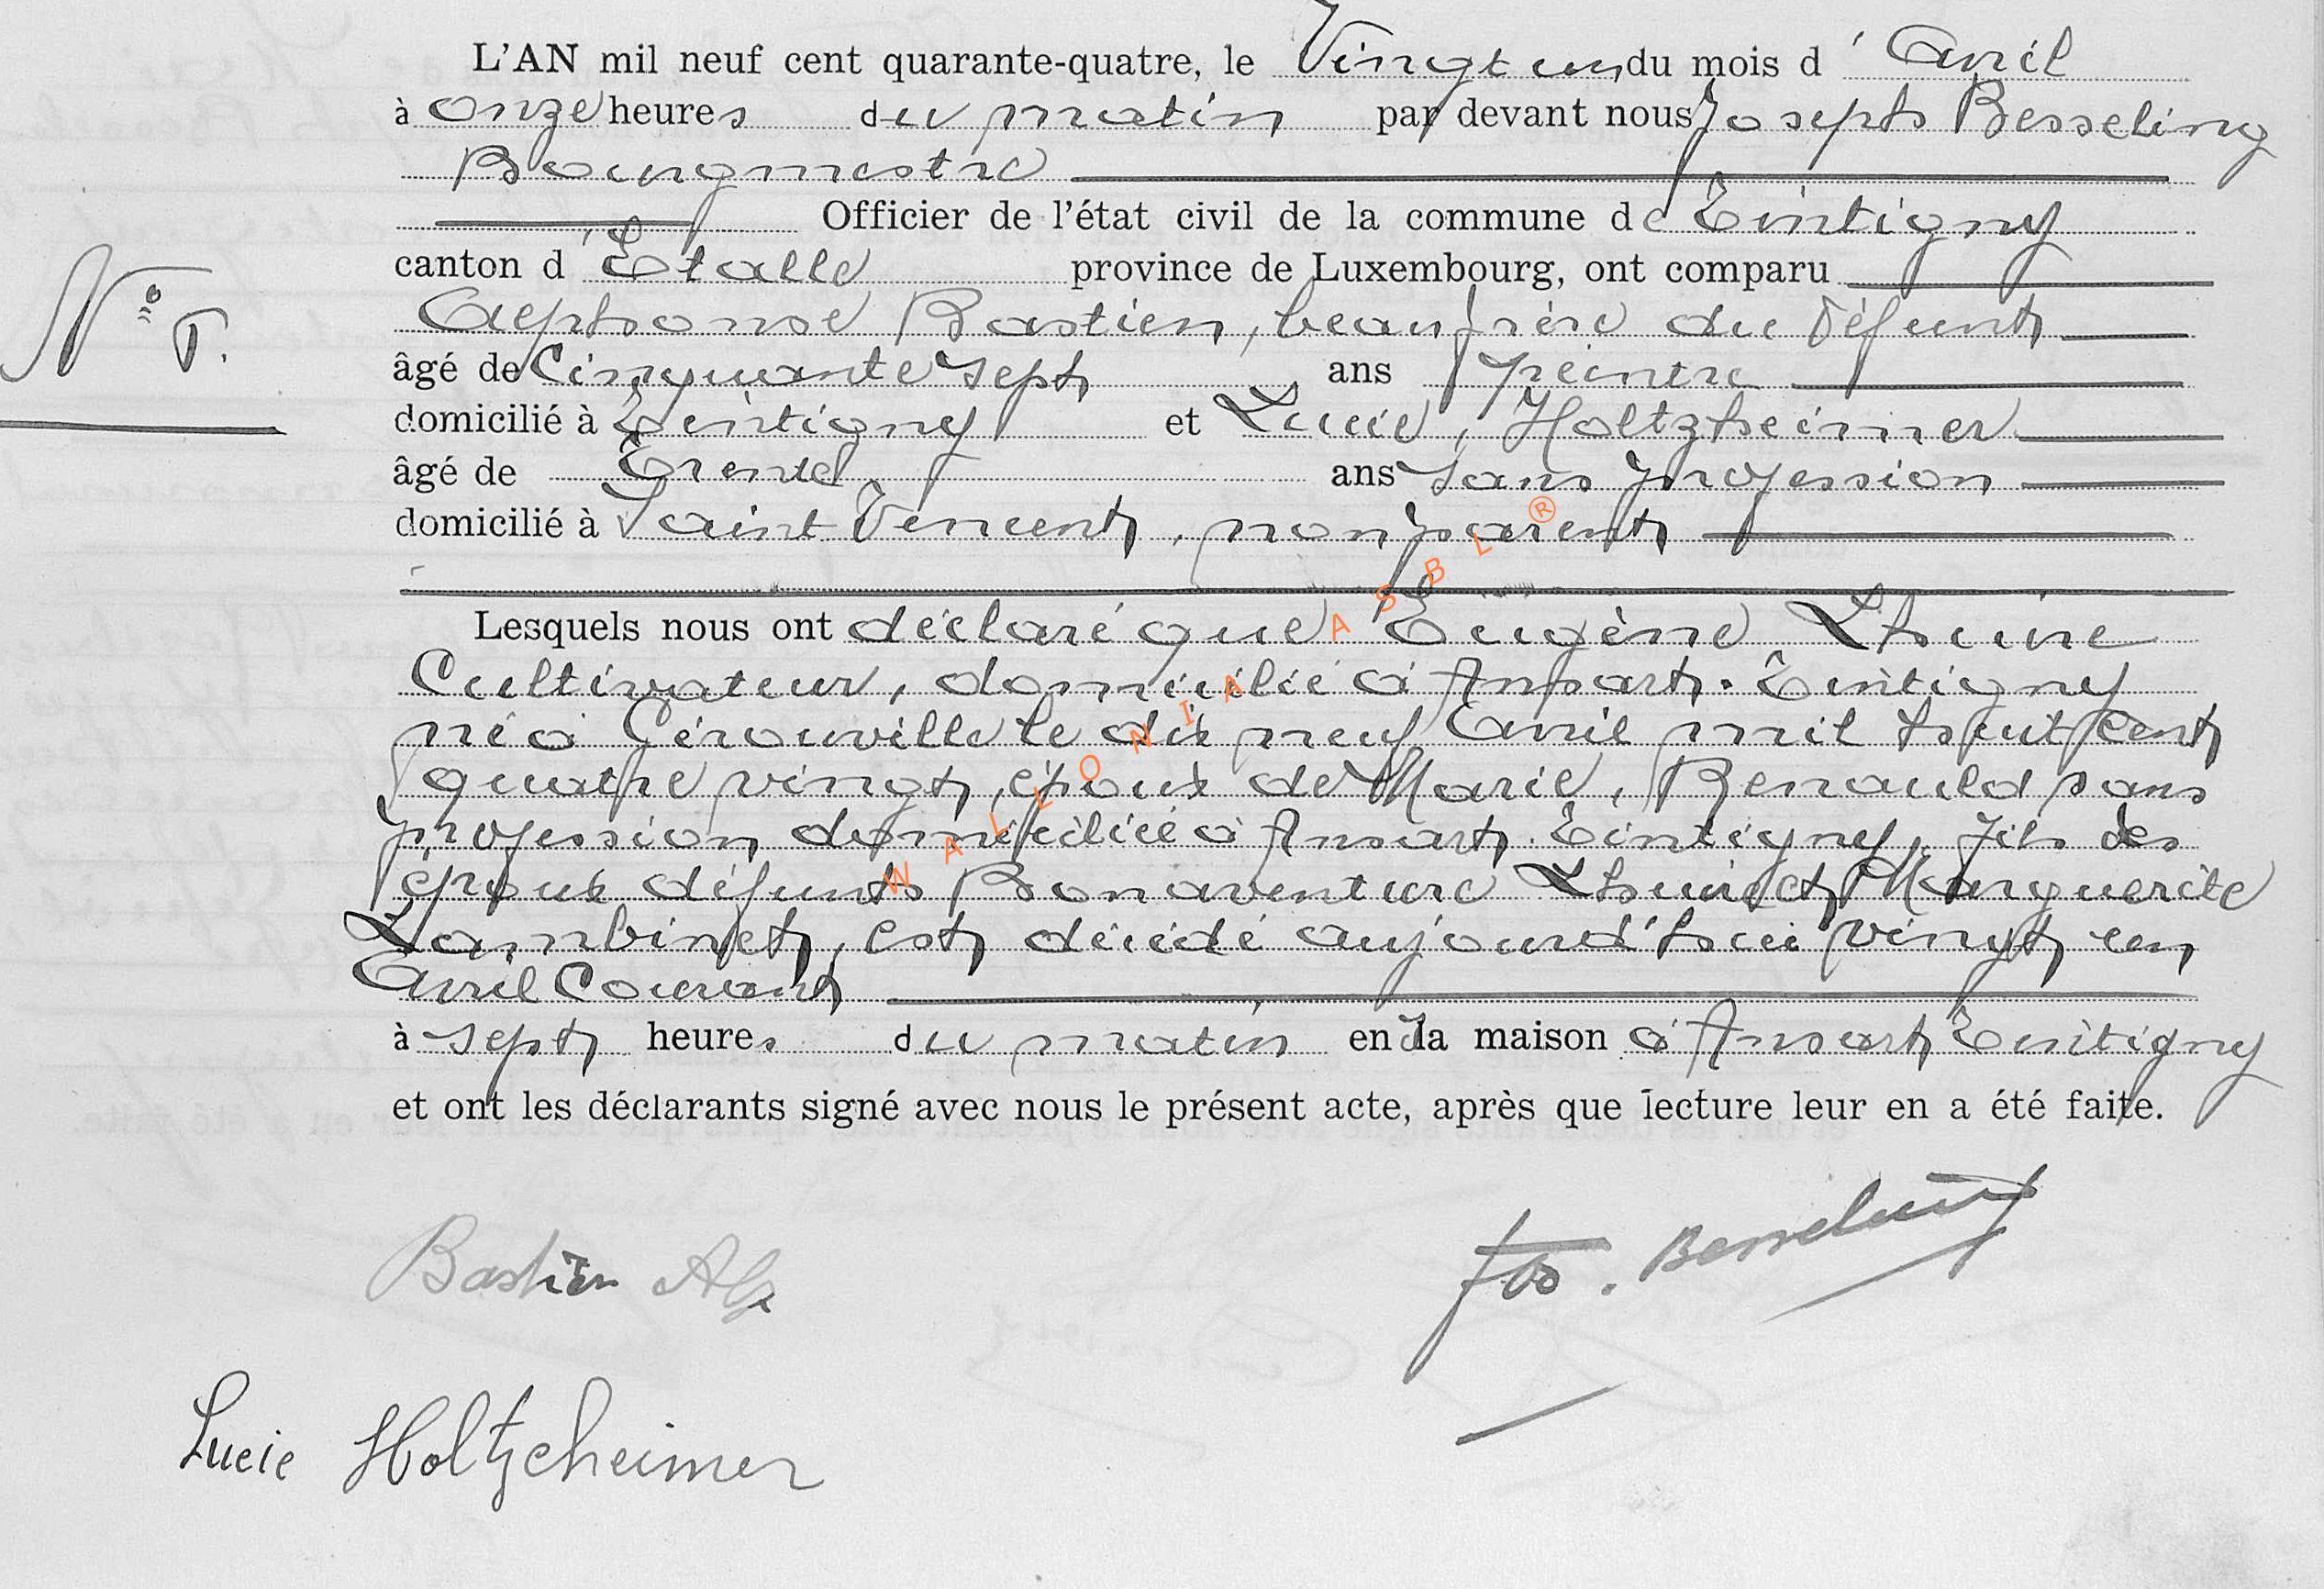 L'AN mil neuf cent quarante-quatre, le Vingt un du mois d' Avril
à onze heures du matin par devant nous Joseph Besseling
Bourgmestre
Officier de l'état civil de la commune de Tintigny
canton d' Étalle province de Luxembourg, ont comparu
N°
Alphonse Bastien, beaufrère du défunt
âgé de Cinquante sept ans peintre
domicilié à Tintigny et Lucie, Holtzheimer
âgé de Trente ans sans profession
domicilié à Saint Vincent, non parent
Lesquels nous ont déclaré que Eugène Lhuire
Cultivateur, domicilié à Ansart. Tintigny
né à Gérouville le dix neuf Avril mil huit cent
quatre vingt, époux de Marie, Renauld sans
profession domiciliée à Ansart. Tintigny, fils des
époux défunts Bonaventure Lhuire et Marguerite
Lambinet, est décédé aujourd'hui vingt un
Avril Courant
à sept heures du matin en la maison à Ansart Tintigny
et ont les déclarants signé avec nous le présent acte, après que lecture leur en a été faite.
Bastien Alp
Jos. Besseling
Lucie Holtzcheimer
WALLONIA ASBL ®